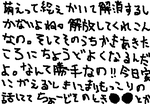 萌えって絵えかいて解消するし
かないよね。解放してくれこん
なの。そしてそのうちかきあきた
ころにちょうどよくなるんだ
よ。なんて勝手なの!!今日家
にがえるしまにきいもっこりの
話にて ちょーどそのとき●●で